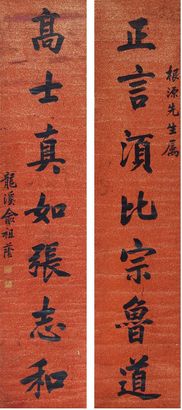 根源先生属
正言湏比宗魯道
髙士真如張志和
龍溪俞祖蔭